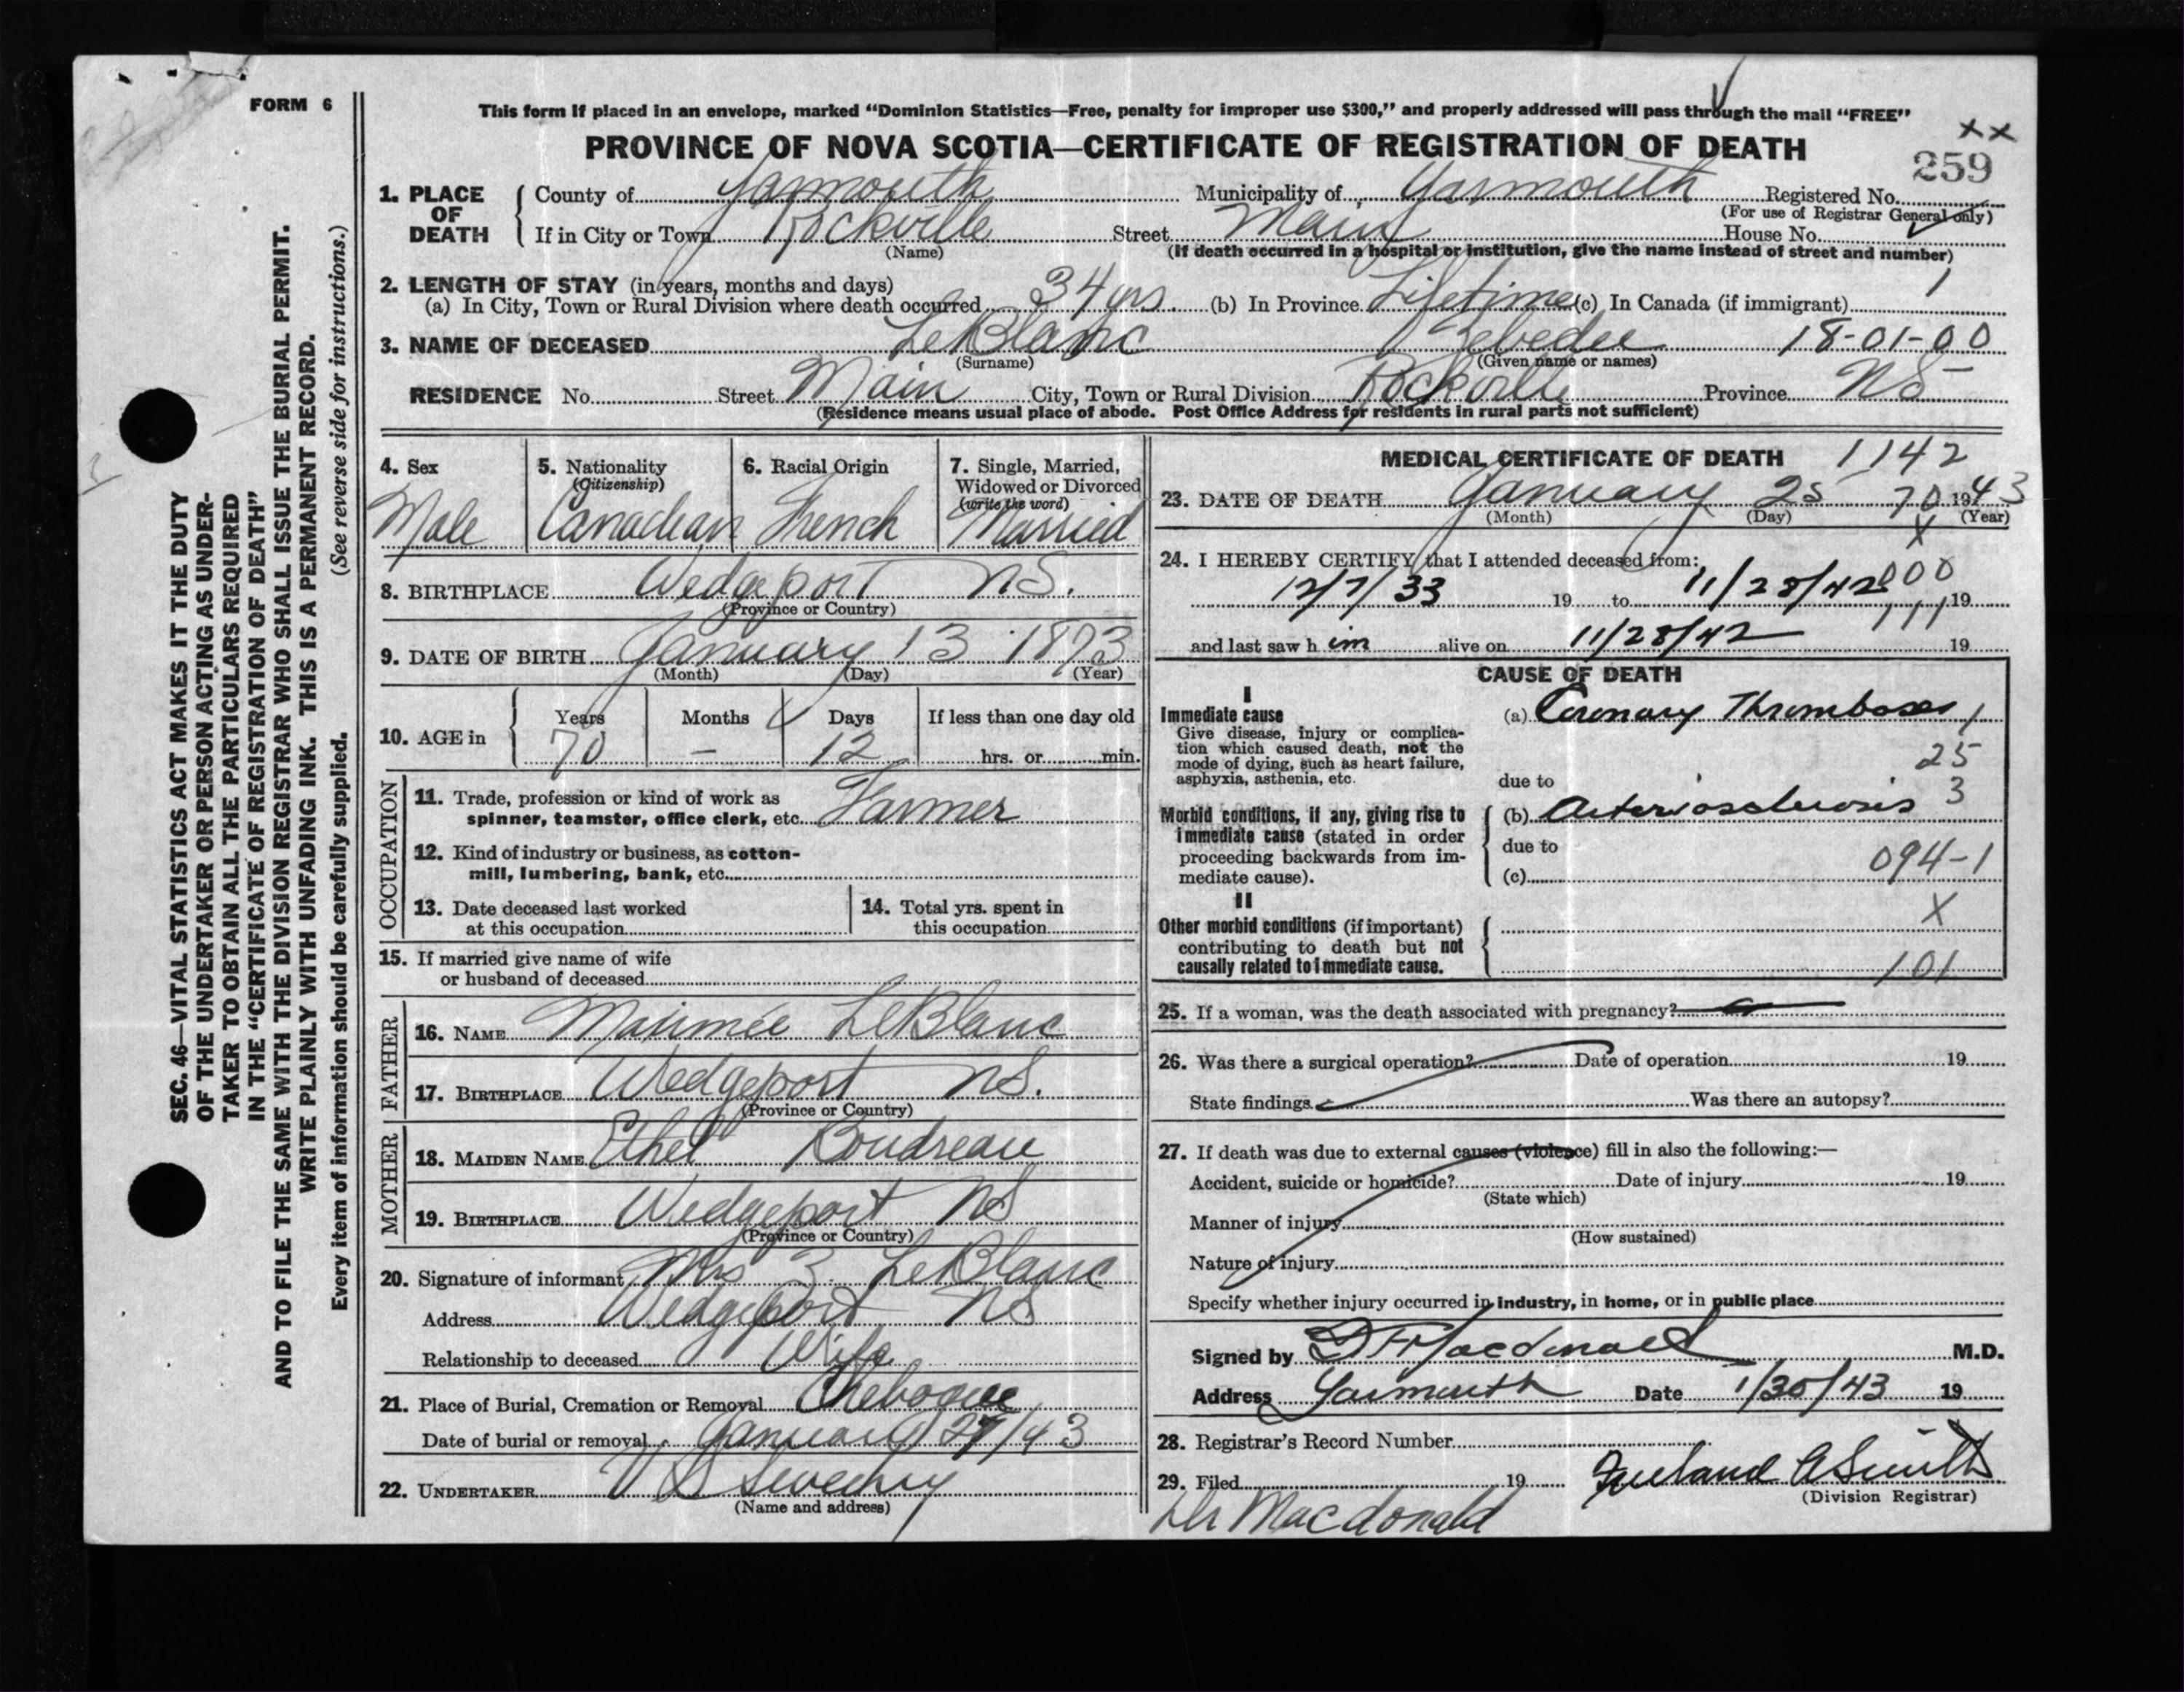 FORM 6
This form if placed in an envelope, marked "Dominion Statistics—Free, penalty for improper use $300," and properly addressed will pass through the mail "FREE"
PROVINCE OF NOVA SCOTIA—CERTIFICATE OF REGISTRATION OF DEATH
xx
259
1. PLACE OF DEATH
County of Yarmouth Municipality of Yarmouth Registered No.
(For use of Registrar General only)
If in City or Town Rockville Street Main House No.
(Name) (If death occurred in a hospital or institution, give the name instead of street and number)
2. LENGTH OF STAY (in years, months and days)
(a) In City, Town or Rural Division where death occurred 34 yrs. (b) In Province Lifetime (c) In Canada (if immigrant) 1
3. NAME OF DECEASED LeBlanc Zebedee 18-01-00
(Surname) (Given name or names)
RESIDENCE No. Street Main City, Town or Rural Division Rockville Province NS
(Residence means usual place of abode. Post Office Address for residents in rural parts not sufficient)
4. Sex
Male
5. Nationality
(Citizenship)
Canadian
6. Racial Origin
French
7. Single, Married,
Widowed or Divorced
(write the word)
Married
8. BIRTHPLACE Wedgeport NS.
(Province or Country)
9. DATE OF BIRTH January 13 1873
(Month) (Day) (Year)
10. AGE in
Years Months Days If less than one day old
70 — 12 hrs. or min.
OCCUPATION
11. Trade, profession or kind of work as
spinner, teamster, office clerk, etc. Farmer
12. Kind of industry or business, as cotton-
mill, lumbering, bank, etc.
13. Date deceased last worked
at this occupation
14. Total yrs. spent in
this occupation
15. If married give name of wife
or husband of deceased
FATHER
16. NAME Maximée LeBlanc
17. BIRTHPLACE Wedgeport NS.
(Province or Country)
MOTHER
18. MAIDEN NAME Ethel Boudreau
19. BIRTHPLACE Wedgeport NS
(Province or Country)
20. Signature of informant Mrs Z. LeBlanc
Address Wedgeport NS
Relationship to deceased Wife
21. Place of Burial, Cremation or Removal Chebogue
Date of burial or removal January 27/43
22. UNDERTAKER V S Sweeny
(Name and address)
MEDICAL CERTIFICATE OF DEATH 1142
23. DATE OF DEATH January 25 70 1943
(Month) (Day) (Year)
x
24. I HEREBY CERTIFY that I attended deceased from:
000
12/7/33 19 to 11/28/42 19
111
and last saw h im alive on 11/28/42 19
CAUSE OF DEATH
I
Immediate cause
Give disease, injury or complica-
tion which caused death, not the
mode of dying, such as heart failure,
asphyxia, asthenia, etc.
(a) Coronary Thromboses 1
25
due to
3
Morbid conditions, if any, giving rise to
immediate cause (stated in order
proceeding backwards from im-
mediate cause).
(b) Arteriosclerosis
due to
094-1
(c)
II
X
Other morbid conditions (if important)
contributing to death but not
causally related to immediate cause.
101
25. If a woman, was the death associated with pregnancy?
26. Was there a surgical operation? Date of operation 19
State findings Was there an autopsy?
27. If death was due to external causes (violence) fill in also the following:—
Accident, suicide or homicide? Date of injury 19
(State which)
Manner of injury
(How sustained)
Nature of injury
Specify whether injury occurred in industry, in home, or in public place
Signed by D F Macdonald M.D.
Address Yarmouth Date 1/30/43 19
28. Registrar's Record Number
29. Filed 19 A Smith
(Division Registrar)
Dr Macdonald
SEC. 46—VITAL STATISTICS ACT MAKES IT THE DUTY
OF THE UNDERTAKER OR PERSON ACTING AS UNDER-
TAKER TO OBTAIN ALL THE PARTICULARS REQUIRED
IN THE "CERTIFICATE OF REGISTRATION OF DEATH"
AND TO FILE THE SAME WITH THE DIVISION REGISTRAR WHO SHALL ISSUE THE BURIAL PERMIT.
WRITE PLAINLY WITH UNFADING INK. THIS IS A PERMANENT RECORD.
Every item of information should be carefully supplied. (See reverse side for instructions.)